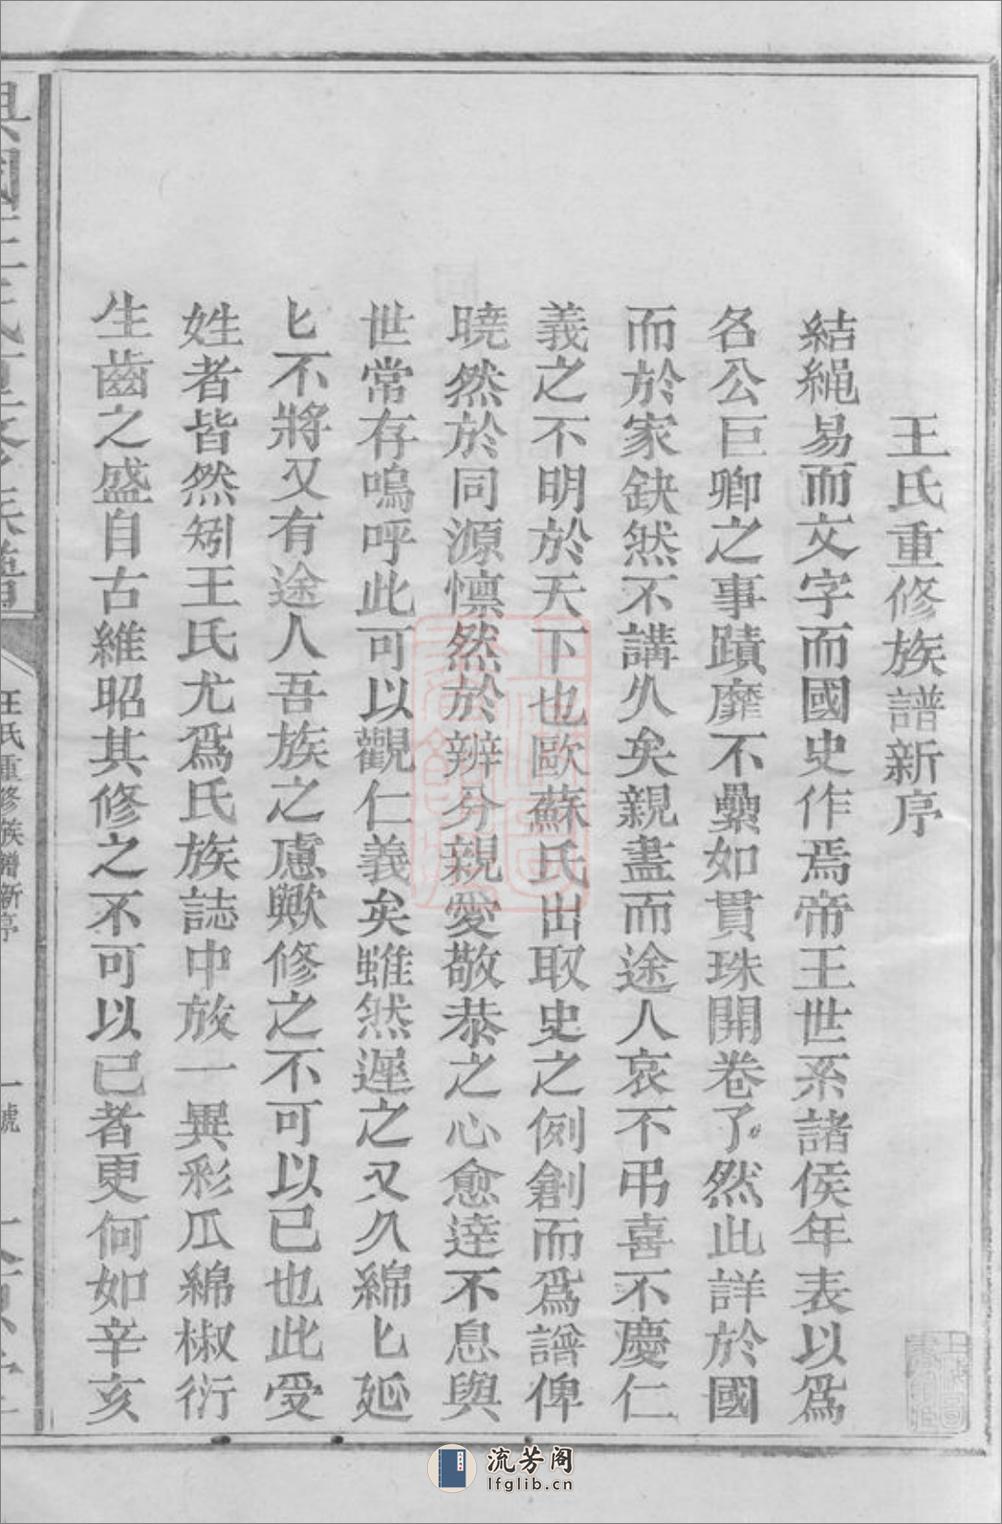 王氏重修族譜新序
結繩易而文字而國史作焉帝王世系諸侯年表以爲
名公巨卿之事蹟靡不纍如貫珠開卷了然此詳於國
而於家缺然不講久矣親盡而途人哀不弔喜不慶仁
義之不明於天下也歐蘇氏出取史之例創而爲譜俾
曉然於同源懍然於辨分親愛敬恭之心愈達不息與
世常存嗚呼此可以觀仁義矣雖然遲之又久綿匕延
匕不將又有途人吾族之慮歟修之不可以已也此受
姓者皆然矧王氏尤爲氏族誌中放一異彩瓜綿椒衍
生齒之盛自古維昭其修之不可以已者更何如辛亥
王氏重修族譜新序
一號
流芳阁
lfglib.cn